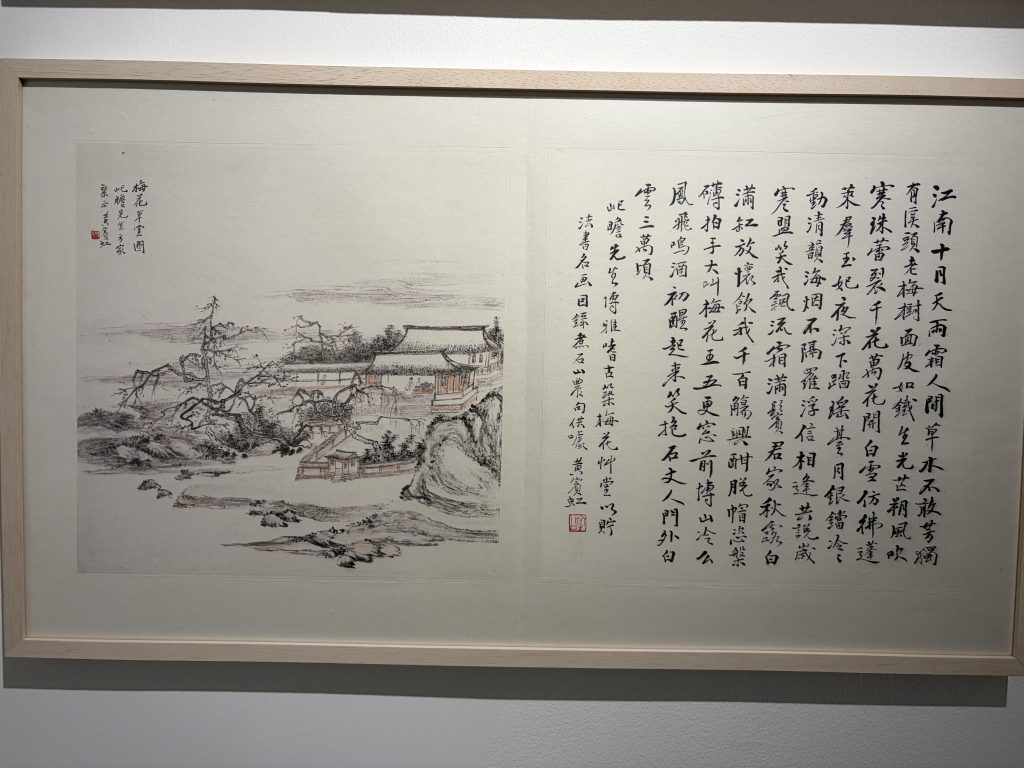 江南十月天雨霜人間草木不敢芳獨
有溪頭老梅樹面皮如鐵生光芒朔風吹
寒珠蕾裂千花萬花開白雪仿彿蓬
萊羣玉妃夜深下踏瑤臺月銀鐺泠々
動清韻海烟不隔羅浮信相逢共說歲
寒盟笑我飄流霜滿鬢君家秋露白
滿缸放懷飲我千百觴興酣脫帽恣槃
礴拍手大叫梅花王五更窓前博山冷么
鳳飛鳴酒初醒起來笑挹石丈人門外白
雲三萬頃
屺瞻先生博雅嗜古築梅花艸堂以貯
法書名画因錄煮石山農句供噱 黃賓虹
梅花草堂圖
屺瞻先生方家
粲正 黃賓虹